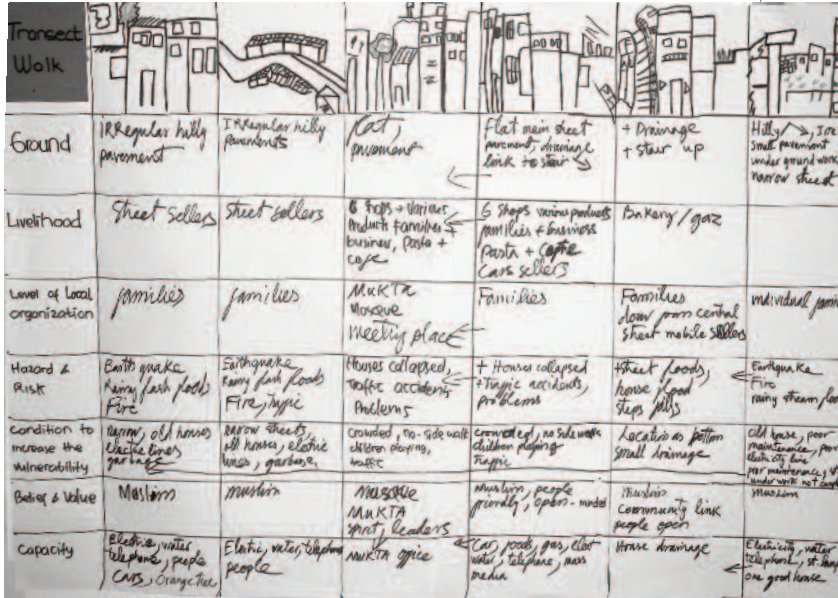 Transect
Walk
Ground
IRRegular hilly
pavement
IRRegular hilly
pavements
flat,
pavement
Flat main street
pavement, drainage
link to stair
+ Drainage
+ stair up
Hilly
small pavement
under ground work
narrow street
Livelihood
Street sellers
Street sellers
6 shops → various
Products families +
business, pasta +
cafe
6 shops various products
families + business
pasta +
cars sellers
Bakery / gaz
Level of Local
organization
families
families
MuKTA
Mosque
meeting place
Families
Families
down from central
street mobile sellers
individual
Hazard &
Risk
Earth quake
Rainy flash floods
Fire
Earthquake
Rainy flash floods
Fire, Traffic
Houses collapsed,
Traffic accidents
Problems
+ Houses collapsed
+ Traffic accidents,
problems
+ street floods,
house flood
steps falls
Earthquake
Fire
rainy
Condition to
increase the
vulnerability
narrow, old houses
electric lines
garbage
narrow streets,
old houses, electric
lines, garbage,
crowded, no-side walk
children playing,
traffic
crowded, no side walk
children playing
traffic
Location as bottom
small drainage
old house, poor
maintenance, poor
electricity line
poor maintenance,
under work not
Belief & Value
Muslims
muslim
Mosque
MuKTA
spirit, leaders
Muslim, people
friendly, open-minded
muslim
community link
people open
muslim
Capacity
Electric, water
telephone, people
CARS, Orange tree
Electric, water, telephone
people
MuKTA office
Car, foods, gas,
water, telephone, mass
media
House drainage
Electricity, water
telephone, st.
one good house